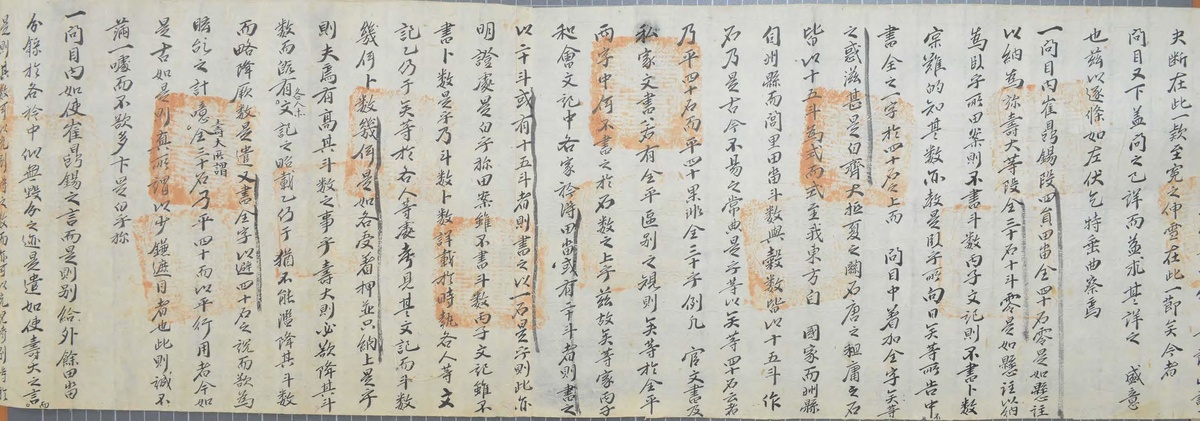 夬断在此一款至寃之伸雪在此一節矣今者
問目又下盖問之已詳而益求其詳之 盛意
也玆以逐條如左伏乞特垂曲察焉
一問目內崔鼎錫段四首田畓全四十石零是如懸註
以納爲旀壽大等段全三十石十斗零是如懸註以納
爲臥乎所田案則不書斗數丙子文記則不書卜數
宗難的知其數亦敎是臥乎所向日矣等所告中
書全之一字於四十石之上而 問目中着加全字矣等
之惑滋甚是白齊大抵夏之關石唐之租庸之石
皆以十五斗爲式而式至我東方自 國家而州縣
自州縣而閭里田畓斗數與穀數皆以十五斗 作
石乃是古今不易之常典是乎等以矣等四十石云者
乃平四十石而平四十果非全三十乎例凡 官文書及
私家文書若有全平區別之規則矣等於全平
兩字中何不書之於石數之上乎玆故矣等家丙子
和會文記中各家衿得田畓或有二十斗者則書之
以二十斗或有十五斗者則書之以一石是乎則此亦
明證處是白乎旀田案雖不書斗數丙子文記雖不
書卜數是乎乃斗數卜數詳載於時執各人等文
記乙仍于矣等於各人等處考見其文記而斗數
幾何卜數幾何是如各受着押並只納上是乎
則夫焉有高其斗數之事乎壽大則必欲降其斗
數而旣有各人等文記之昭載乙仍于猶不能濫降其斗數
而略降厥數是遣又書全字以避四十石之說而欲爲
眩的之計噫壽大所謂全三十石乃平四十而以平行用者今如
是古如是則眞所謂以少鎌遮目者也此則誠不
滿一噱而不欲多卞是白乎旀
一問目內如使崔鼎錫之言而是則別給外餘田畓
分錄於各衿中似無幾分之迹是遣如使壽大之言而